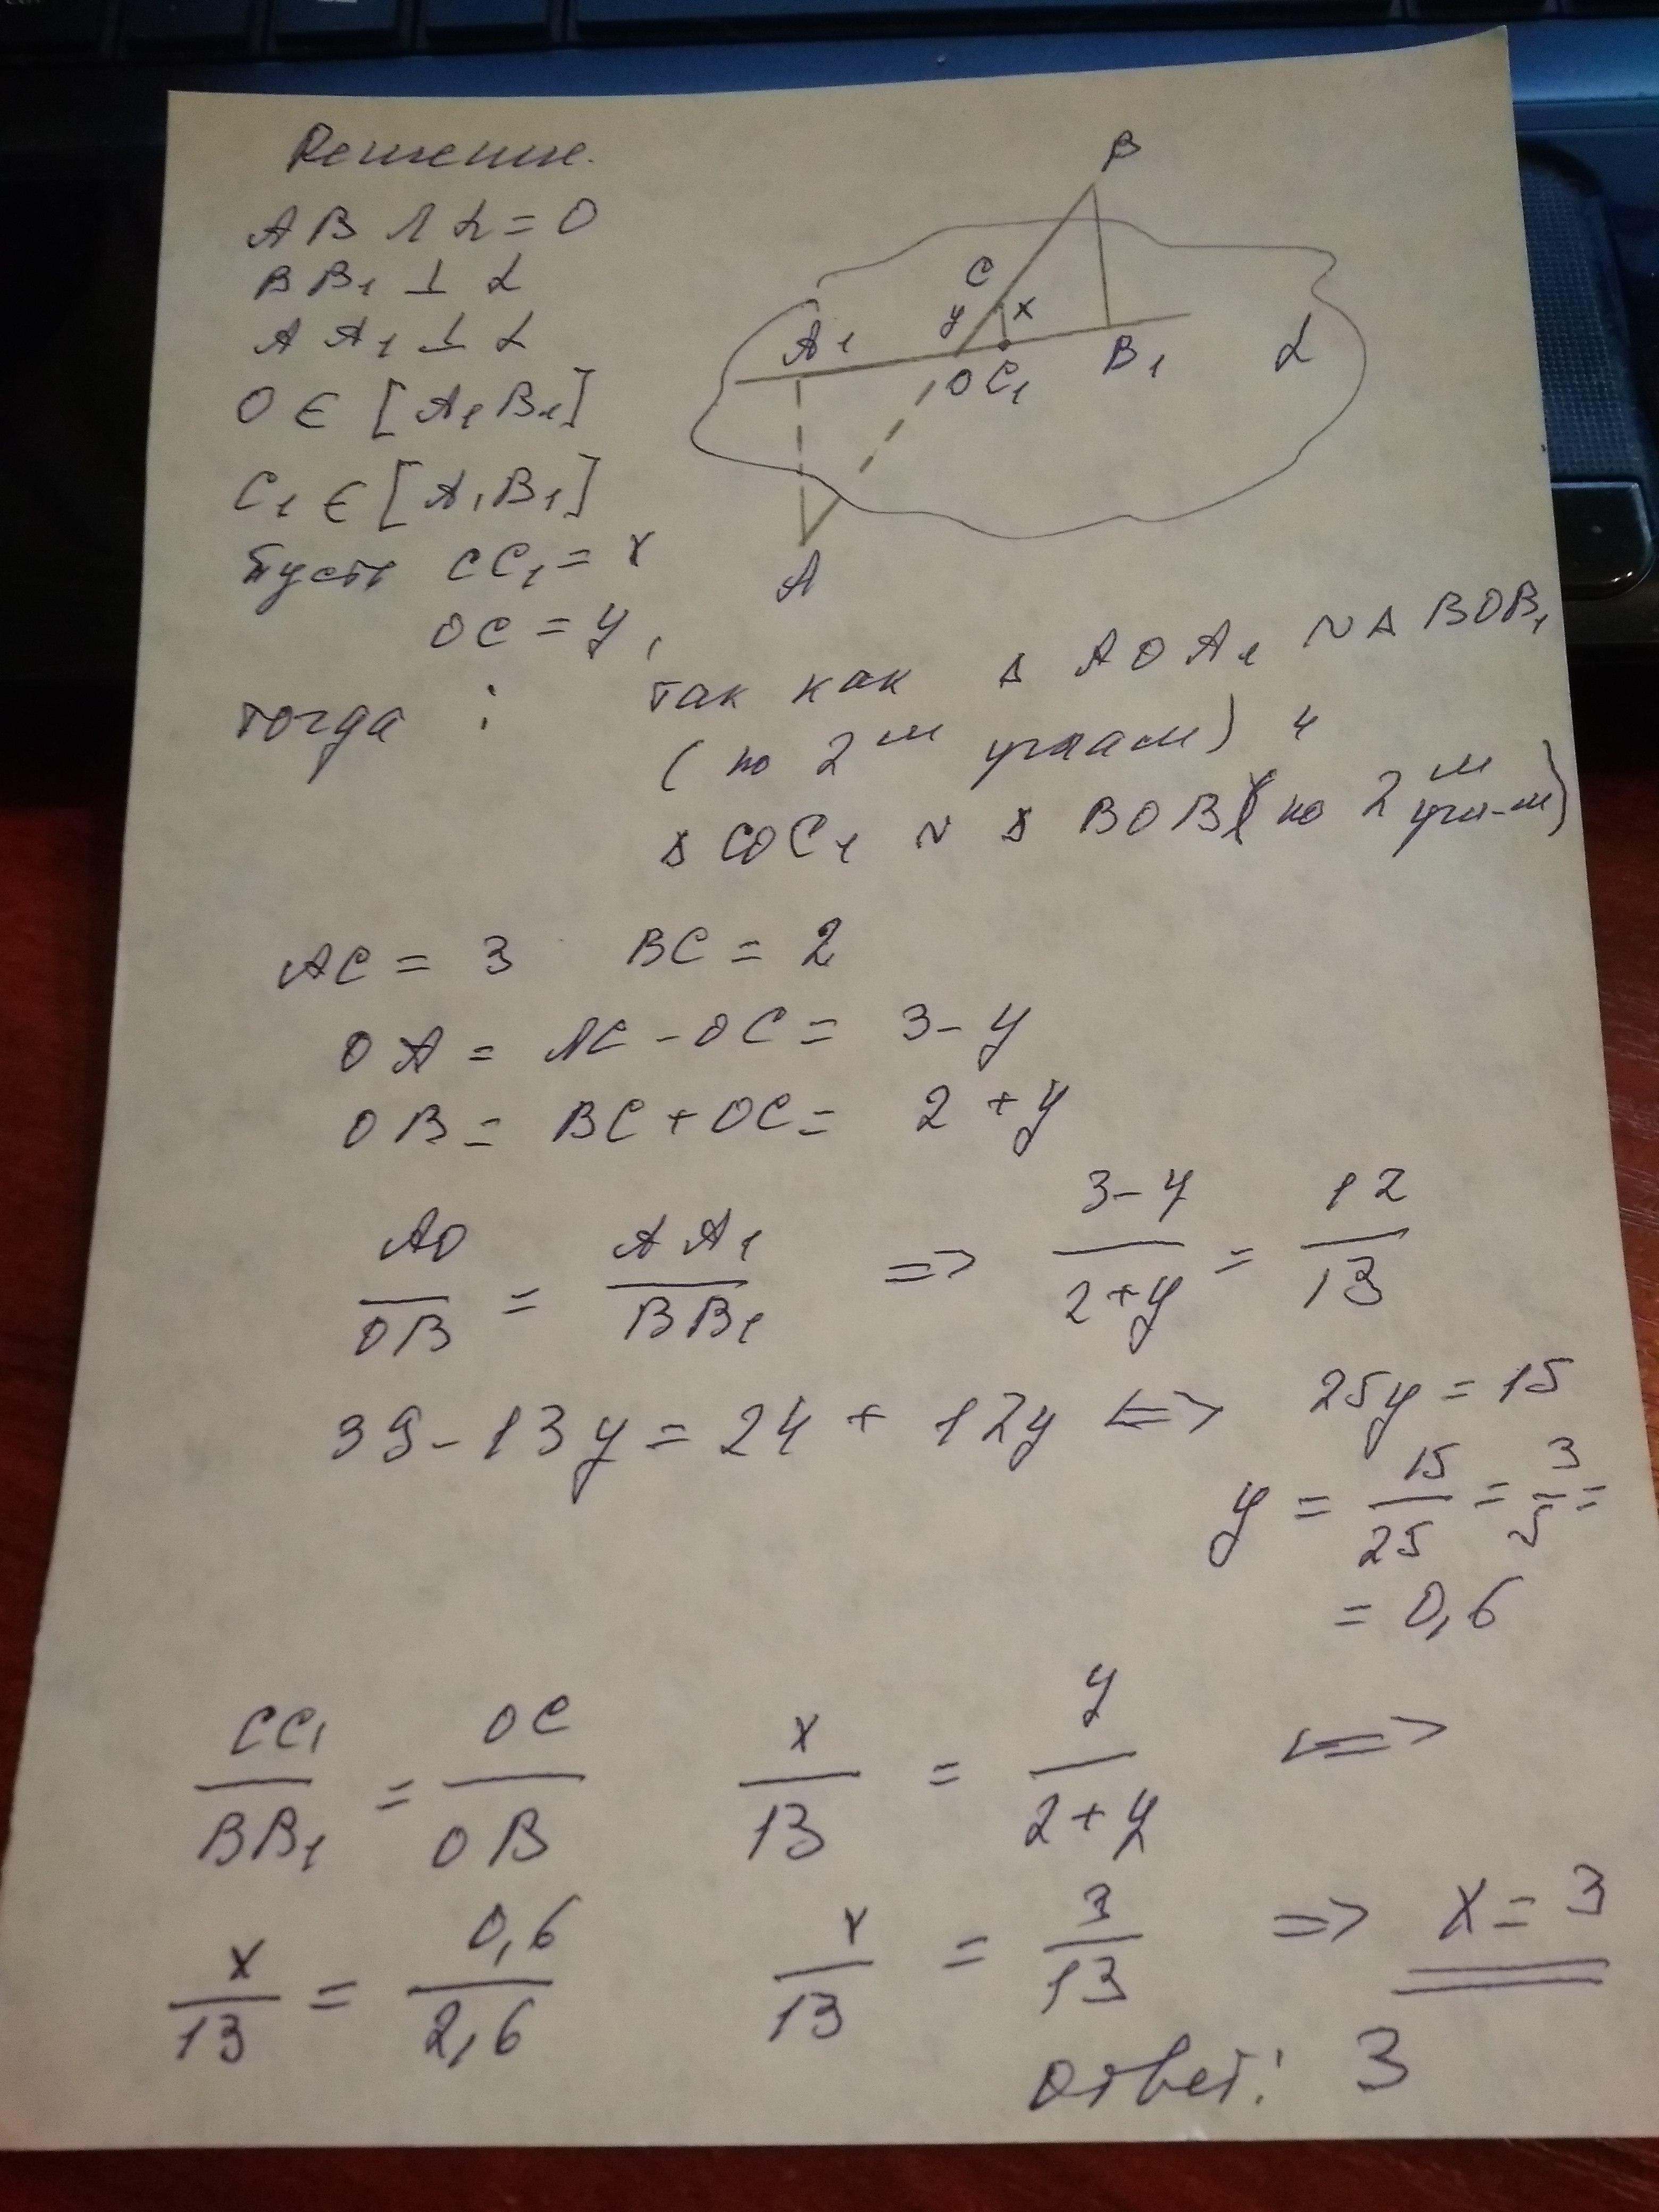 Решение.
AB ∩ α = O
BB₁ ⊥ α
AA₁ ⊥ α
O ∈ [A₁B₁]
C₁ ∈ [A₁B₁]
Пусть CC₁ = x
OC = y,
B
C
y
x
A₁
O
C₁
B₁
α
A
тогда : так как Δ AOA₁ ~ Δ BOB₁
(по 2м углам) и
Δ COC₁ ~ Δ BOB₁ (по 2м угл-м)
AC = 3 BC = 2
OA = AC - OC = 3 - y
OB = BC + OC = 2 + y
AO/OB = AA₁/BB₁ => 3-y/2+y = 12/13
39 - 13y = 24 + 12y <=> 25y = 15
y = 15/25 = 3/5 =
= 0,6
CC₁/BB₁ = OC/OB x/13 = y/2+y <=>
x/13 = 0,6/2,6 x/13 = 3/13 => x = 3
Ответ: 3